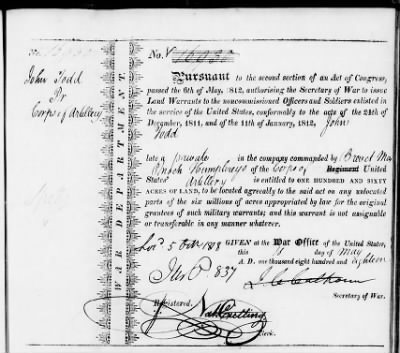 No.
John Todd
Pr
Corps of Artillery
WAR DEPARTMENT.
Pursuant to the second section of an Act of Congress,
passed the 6th of May, 1812, authorising the Secretary of War to issue
Land Warrants to the noncommissioned Officers and Soldiers enlisted in
the service of the United States, conformably to the acts of the 24th of
December, 1811, and of the 11th January, 1812, John
Todd
late a private in the company commanded by Brevet Maj
Enoch Humphreys of the Corps of Regiment United
States' Artillery is entitled to ONE HUNDRED AND SIXTY
ACRES OF LAND, to be located agreeably to the said act on any unlocated
parts of the six millions of acres appropriated by law for the original
grantees of such military warrants; and this warrant is not assignable
or transferable in any manner whatever.
GIVEN at the War Office of the United States,
this day of May
A. D. one thousand eight hundred and eighteen
J C Calhoun
Secretary of War.
Registered.
Clerk.